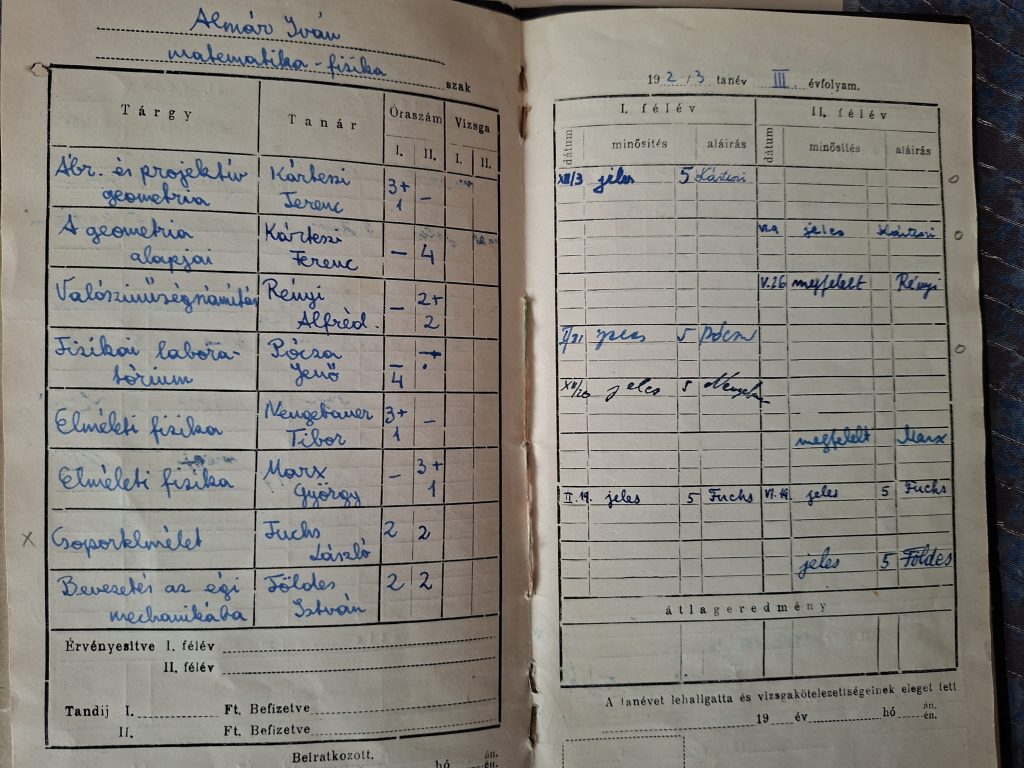 Almár Iván
matematika - fizika szak
Tárgy Tanár Óraszám Vizsga
I. II. I. II.
Ábr. és projektív Kárteszi 3+ –
geometria Ferenc 1
A geometria Kárteszi – 4
alapjai Ferenc
Valószinűségszámítás Rényi – 2+
Alfréd. 2
Fizikai labora- Pócza –
tórium Jenő 4
Elméleti fizika Neugebauer 3+ –
Tibor 1
Elméleti fizika Marx – 3+
György 1
x Csoportelmélet Fuchs 2 2
László
Bevezetés az égi Földes 2 2
mechanikába István
Érvényesitve I. félév
II. félév
Tandij I. Ft. Befizetve
II. Ft. Befizetve
Beiratkozott. hó án.
én.
19 2 / 3 tanév III. évfolyam.
I. félév II. félév
dátum minősítés aláírás dátum minősítés aláírás
XII/3 jeles 5 Kárteszi
jeles Kárteszi
V.26 megfelelt Rényi
5 Pócza
XII/20 jeles 5
megfelelt Marx
II. 19. jeles 5 Fuchs VI. 19. jeles 5 Fuchs
jeles 5 Földes
átlageredmény
A tanévet lehallgatta és vizsgakötelezettségeinek eleget tett
19 év hó án.
én.